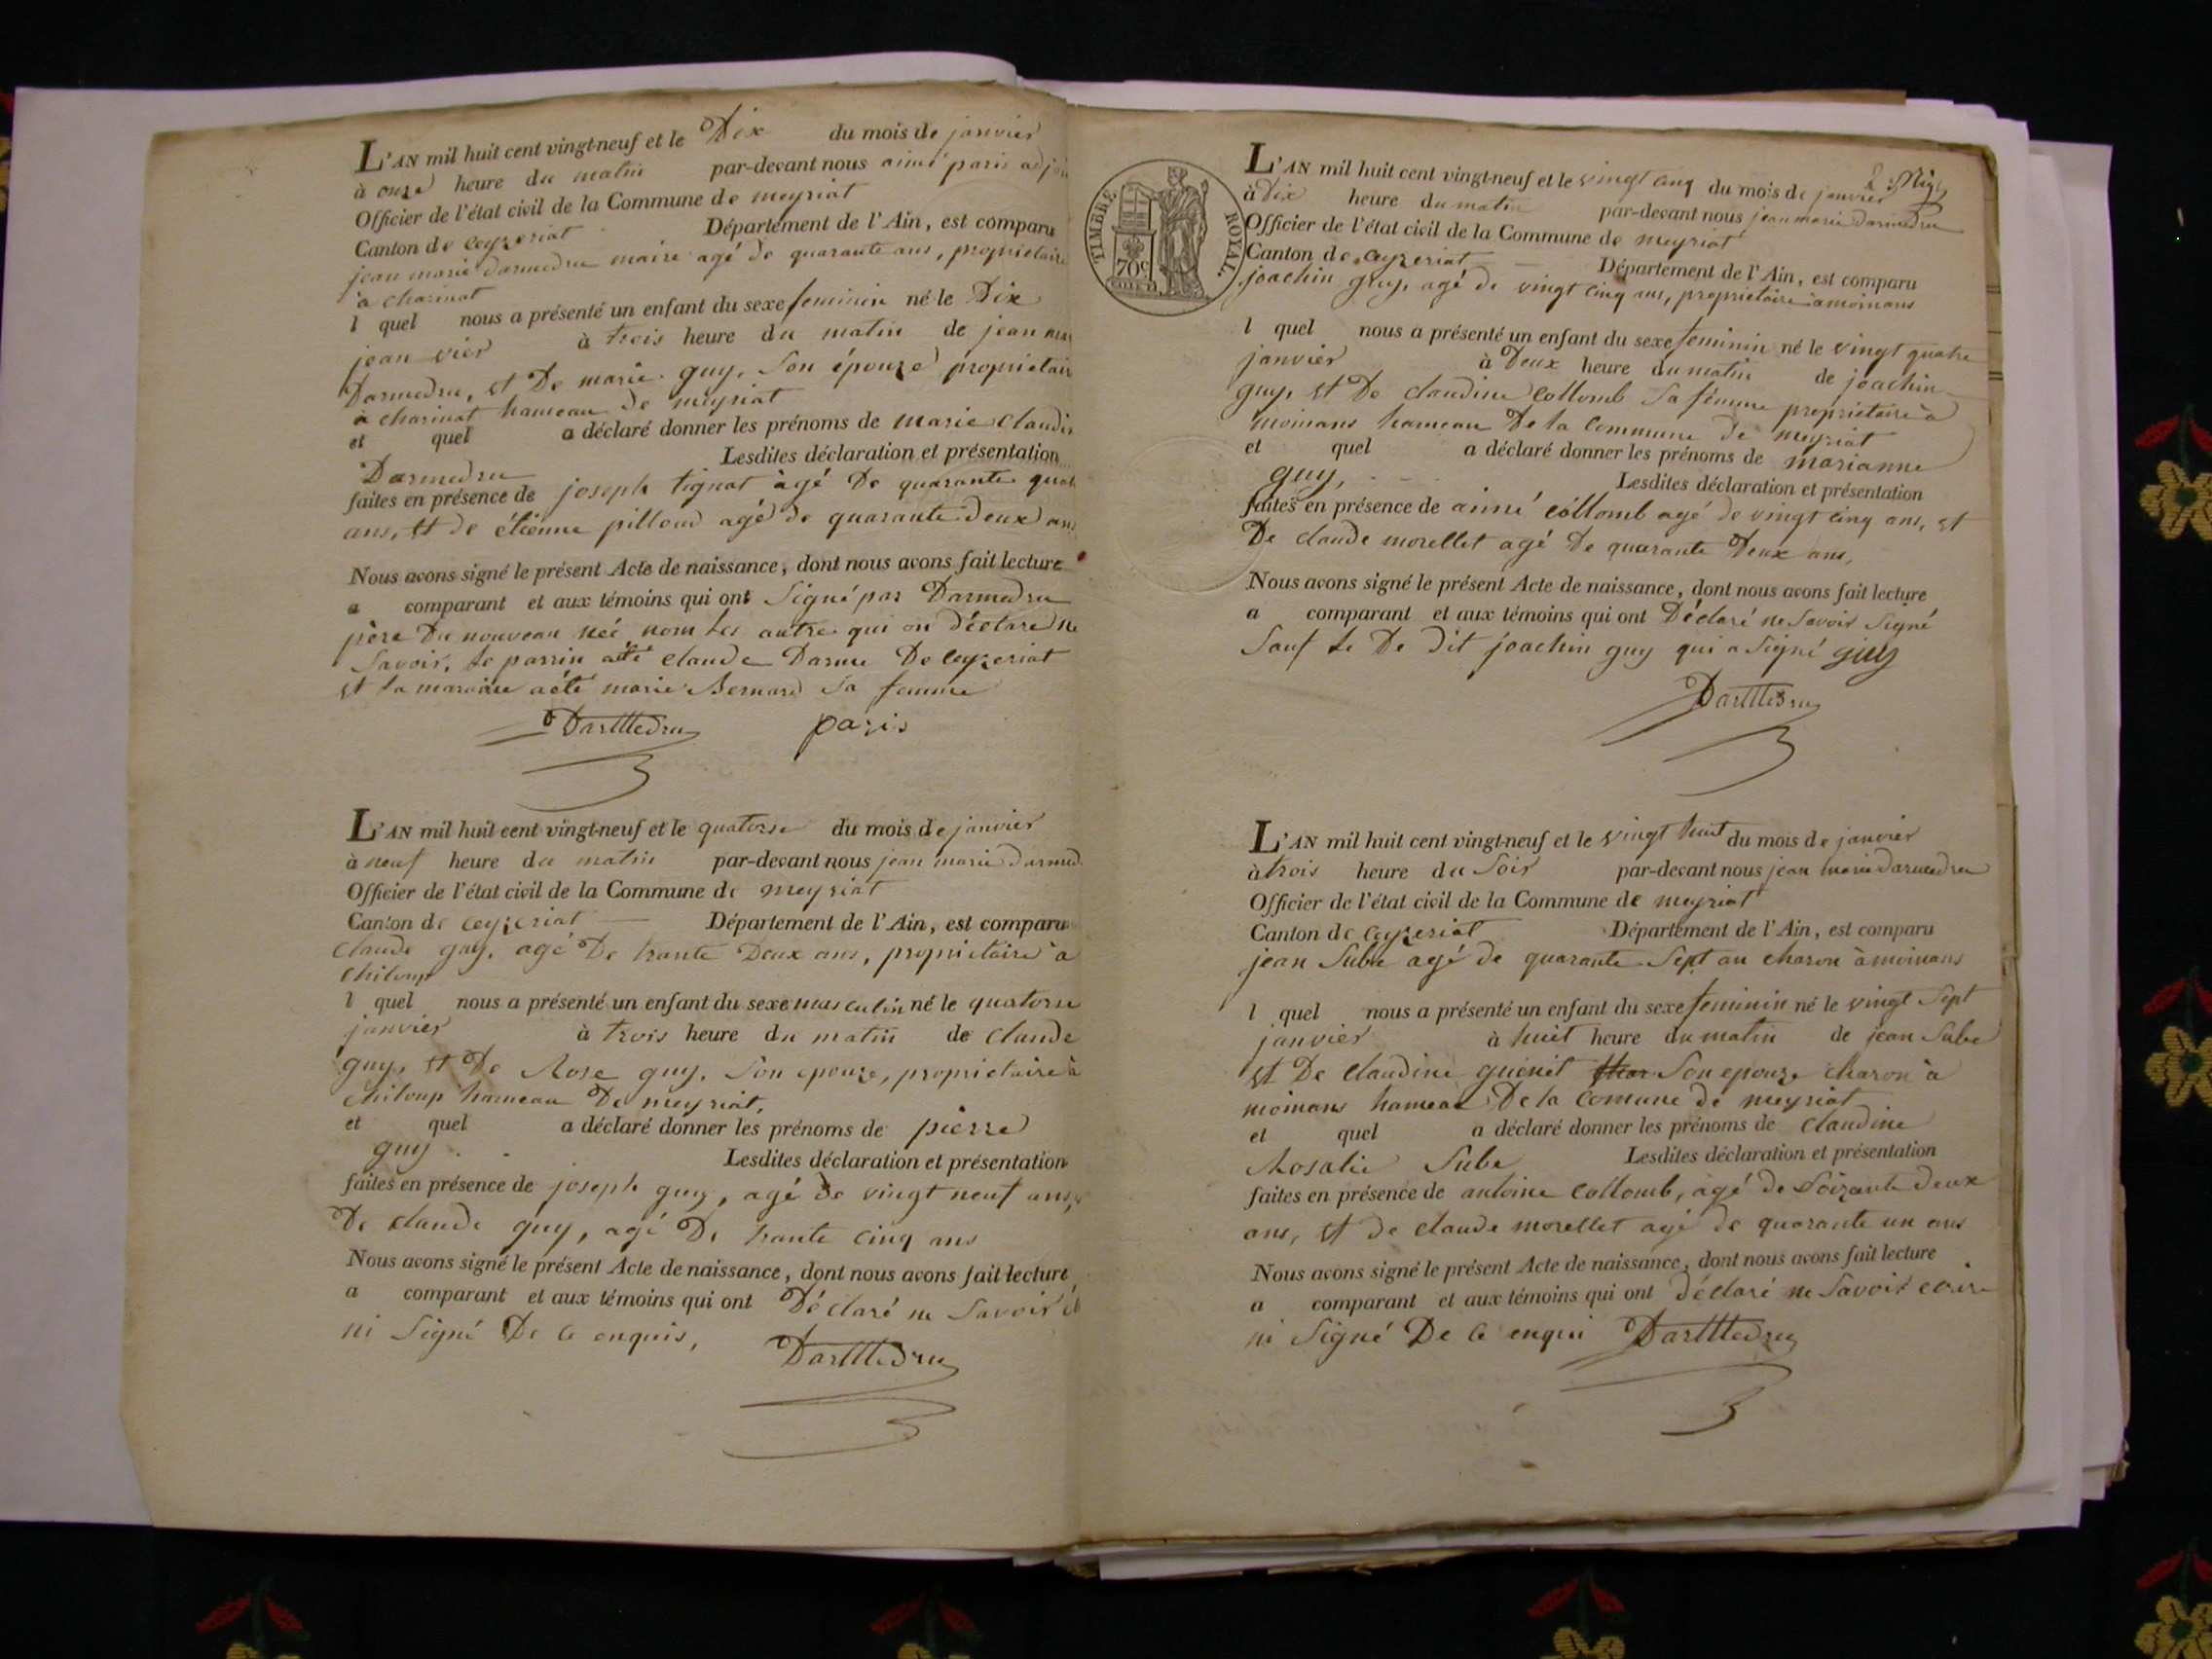 L'AN mil huit cent vingt-neuf et le Dix du mois de janvier
à onze heure du matin par-devant nous aimé paris adjoin
Officier de l'état civil de la Commune de meyriat
Canton de ceyzeriat Département de l'Ain, est comparu
jean marie darmedru maire agé de quarante ans, propriétaire
à charinat
l quel nous a présenté un enfant du sexe feminin né le Dix
jean vier à trois heure du matin de jean mar
Darmedru, et De marie guy, Son épouze propriétaire
à charinat hameau de meyriat
et quel a déclaré donner les prénoms de marie claudin
Darmedru Lesdites déclaration et présentation
faites en présence de joseph tignat àgé De quarante quat
ans, et de étienne pilloud agé de quarante deux ans
Nous avons signé le présent Acte de naissance, dont nous avons fait lecture
a comparant et aux témoins qui ont Signé par Darmedru
père Du nouveau née nom les autre qui on Déclaré ne
Savoir, le parrin a été claude Darme De ceyzeriat
et la maraine a été marie Bernard Sa femme
Darmedru paris
L'AN mil huit cent vingt-neuf et le quatorse du mois de janvier
à neuf heure du matin par-devant nous jean marie darmed
Officier de l'état civil de la Commune de meyriat
Canton de ceyzeriat Département de l'Ain, est comparu
claude guy, agé De trante Deux ans, propriétaire à
chiloup
l quel nous a présenté un enfant du sexe masculin né le quatorse
janvier à trois heure du matin de claude
guy, et De Rose guy, Son epouze, propriétaire à
chiloup hameau De meyriat,
et quel a déclaré donner les prénoms de pierre
guy Lesdites déclaration et présentation
faites en présence de joseph guy, agé de vingt neuf ans,
De claude guy, agé De trante cinq ans
Nous avons signé le présent Acte de naissance, dont nous avons fait lecture
a comparant et aux témoins qui ont Déclaré ne Savoir
ni Signé De ce enquis, Darmedru
TIMBRE ROYAL.
70c
L'AN mil huit cent vingt-neuf et le vingt cinq du mois de janvier
à Dix heure du matin par-devant nous jean marie darmedru
Officier de l'état civil de la Commune de meyriat
Canton de ceyzeriat Département de l'Ain, est comparu
joachin guy, agé de vingt cinq ans, propriétaire à moinans
l quel nous a présenté un enfant du sexe feminin né le vingt quatre
janvier à Deux heure du matin de joachin
guy, et De claudine Collomb Sa fémme propriétaire à
moinans hameau De la Commune de meyriat
et quel a déclaré donner les prénoms de marianne
guy, Lesdites déclaration et présentation
faites en présence de aimé Collomb agé de vingt cinq ans, et
De claude morellet agé De quarante Deux ans,
Nous avons signé le présent Acte de naissance, dont nous avons fait lecture
a comparant et aux témoins qui ont Déclaré ne Savoir Signé
Sauf le De Dit joachin guy qui a Signé guy
Darmedru
L'AN mil huit cent vingt-neuf et le vingt huit du mois de janvier
à trois heure du Soir par-devant nous jean marie darmedru
Officier de l'état civil de la Commune de meyriat
Canton de ceyzeriat Département de l'Ain, est comparu
jean Sube agé de quarante Sept an charon à moinans
l quel nous a présenté un enfant du sexe feminin né le vingt Sept
janvier à huit heure du matin de jean Sube
et De claudine guenet Son epouze charon à
moinans hameau De la Comune de meyriat
et quel a déclaré donner les prénoms de claudine
Rosalie Sube Lesdites déclaration et présentation
faites en présence de antoine Collomb, agé de Soizante deux
ans, et de claude morellet agé de quarante un ans
Nous avons signé le présent Acte de naissance, dont nous avons fait lecture
a comparant et aux témoins qui ont déclaré ne Savoir ecire
ni Signé De ce enqui Darmedru